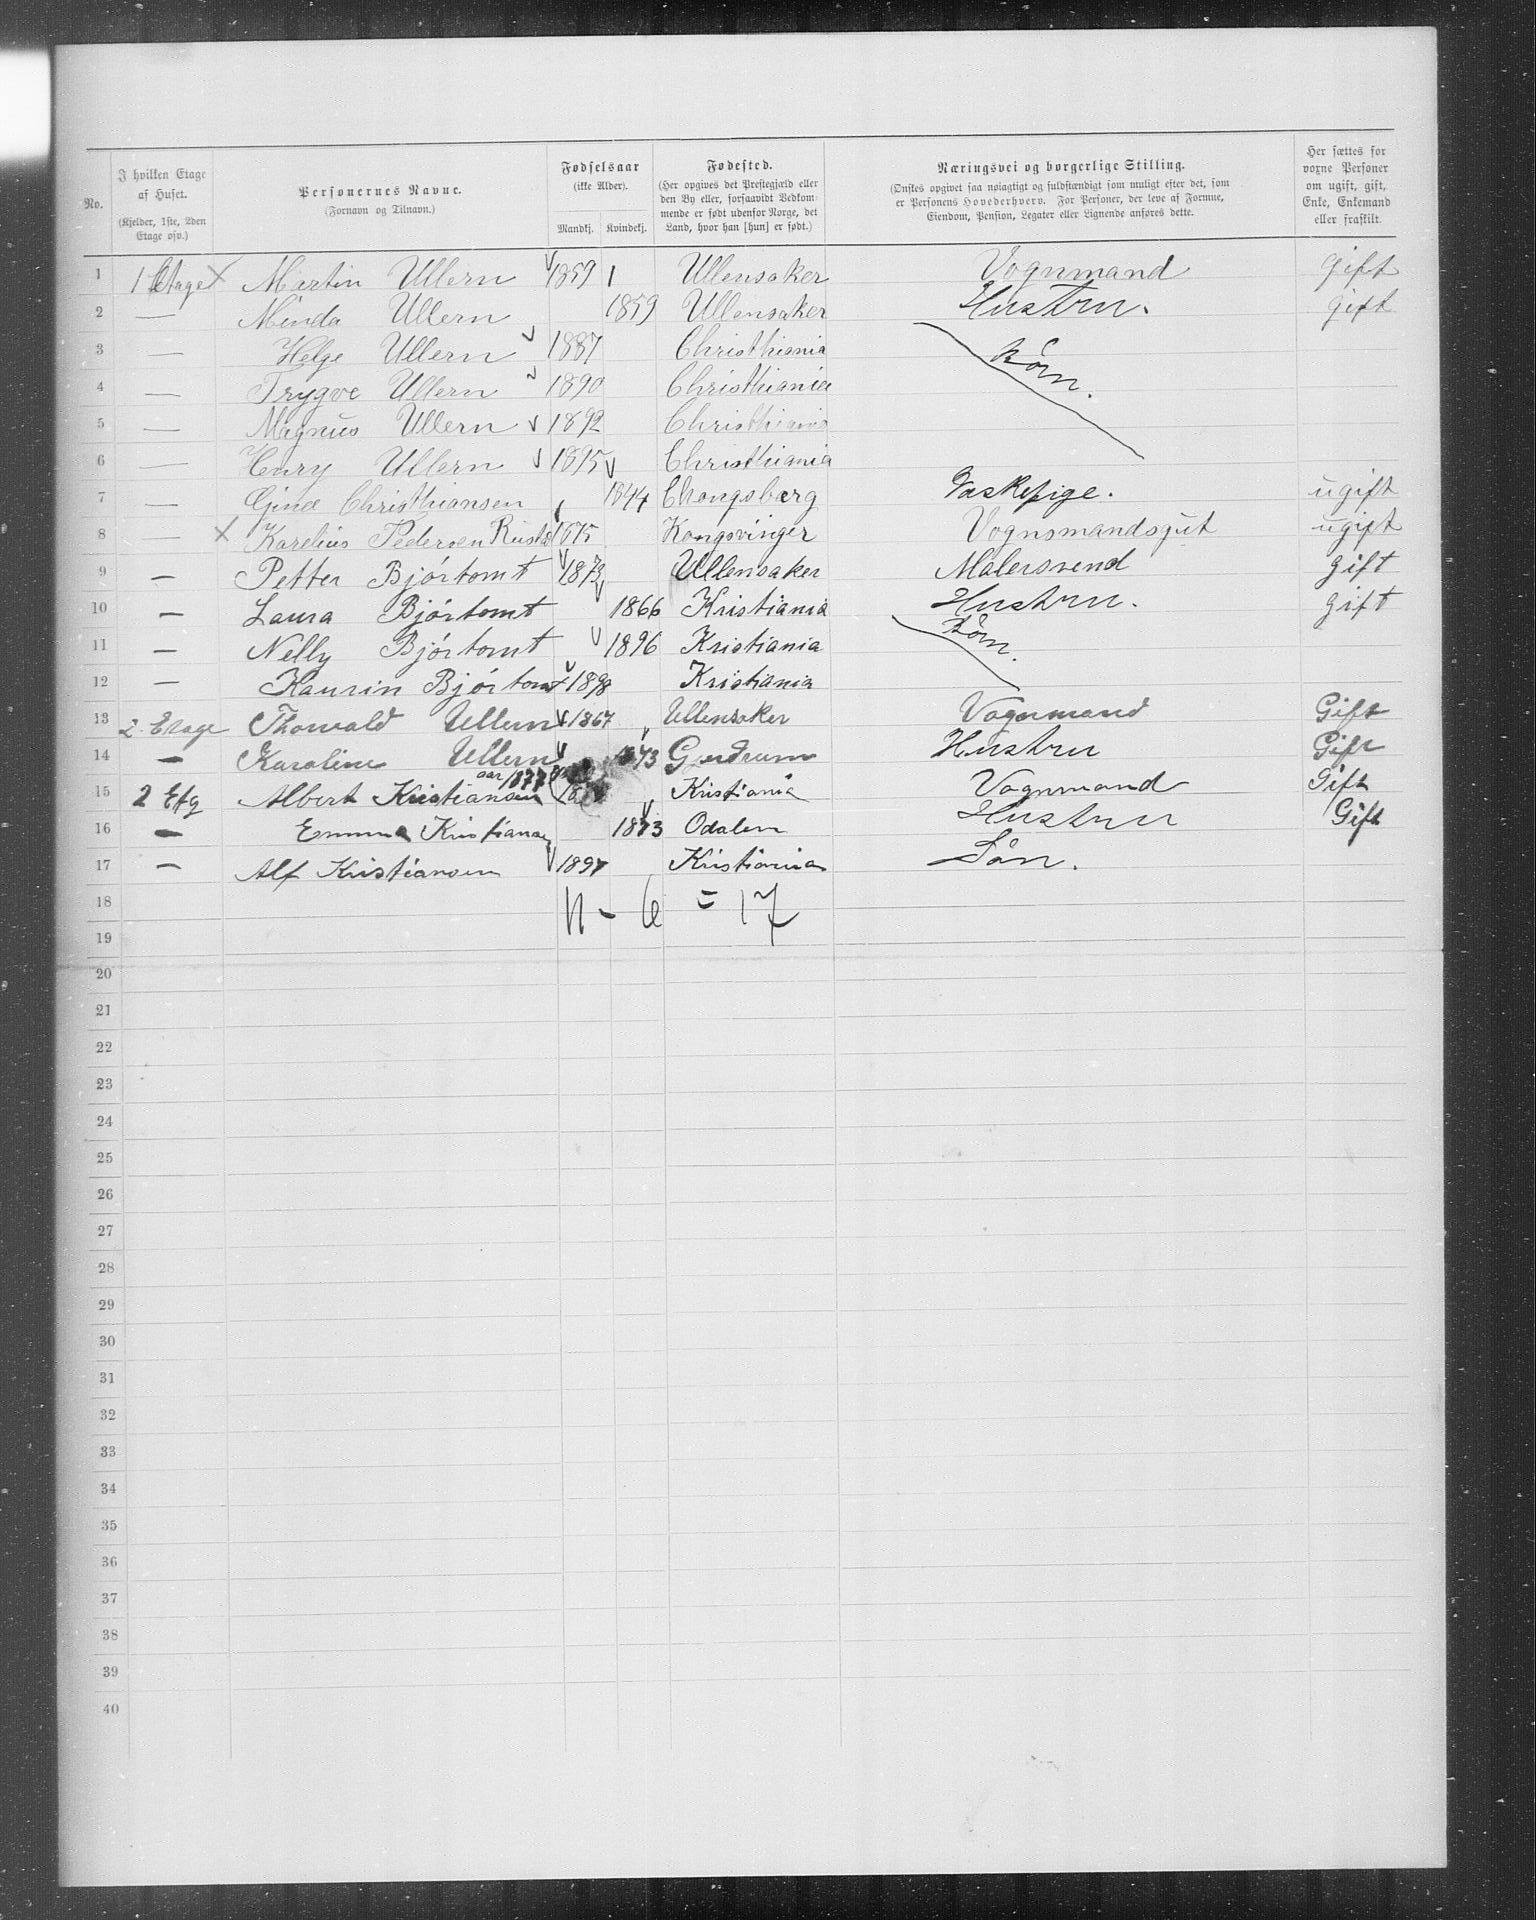 No. I hvilken Etage af Huset. (Kjelder, 1ste, 2den Etage osv.) Personernes Navne. (Fornavn og Tilnavn.) Fødselsaar (ikke Alder). Mandkj. Kvindekj. Fødested. (Her opgives det Prestegjæld eller den By eller, forsaavidt Vedkommende er født udenfor Norge, det Land, hvor han [hun] er født.) Næringsvei og borgerlige Stilling. (Ønskes opgivet saa nøiagtigt og fuldstændigt som muligt efter det, som er Personens Hovederhverv. For Personer, der leve af Formue, Eiendom, Pension, Legater eller Lignende anføres dette. Her sættes for voxne Personer om ugift, gift, Enke, Enkemand eller fraskilt.
1 1 Etage X Martin Ullern 1859 Ullensaker Vognmand Gift
2 — Minda Ullern 1859 Ullensaker Hustru. gift
3 — Helge Ullern 1887 Christhiania Börn.
4 — Trygve Ullern 1890 Christhiania
5 — Magnus Ullern 1892 Christhiania
6 — Henry Ullern 1895 Christhiania
7 — Gina Christhiansen 1844 Chongsberg Vaskepige. ugift
8 — X Karelius Pedersen 1875 Kongsvinger Vognsmandsgut ugift
9 — Petter Bjørtomt 1873 Ullensaker Malersvend gift
10 — Laura Bjørtomt 1866 Kristiania Hustru. gift
11 — Nelly Bjørtomt 1896 Kristiania Börn.
12 — Kaurin Bjørtomt 1898 Kristiania
13 2. Etage Thorvald Ullern 1867 Ullensaker Vognmand Gift
14 — Karoline Ullern 1873 Gjerdrum Hustru Gift
15 2 Etg Albert Kristiansen aar 1877 18 Kristiania Vognmand Gift
16 — Emma Kristiansen 1873 Odalen Hustru Gift
17 — Alf Kristiansen 1897 Kristiania Sön.
18 11 - 6 = 17
19
20
21
22
23
24
25
26
27
28
29
30
31
32
33
34
35
36
37
38
39
40